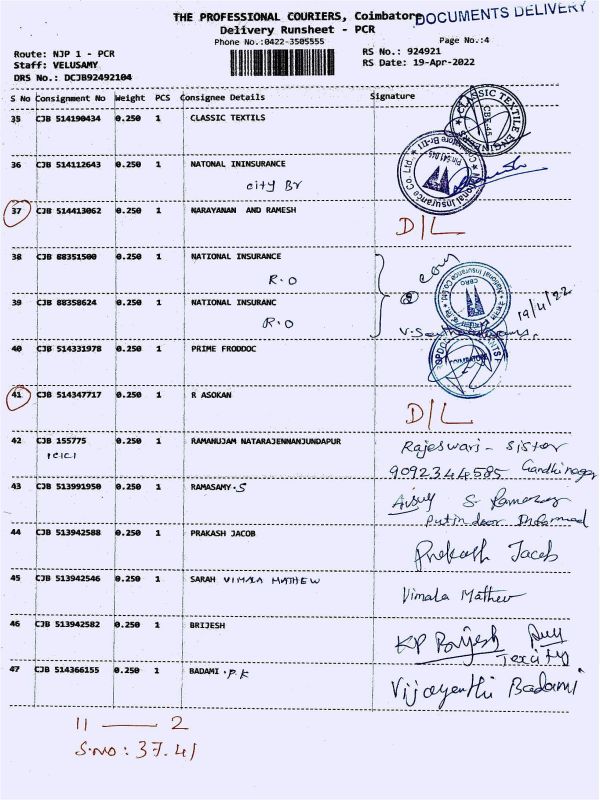 DOCUMENTS DELIVERY
THE PROFESSIONAL COURIERS, Coimbatore
Delivery Runsheet - PCR
Phone No.:0422-3505555
Page No.:4
Route: NJP 1 - PCR
RS No.: 924921
Staff: VELUSAMY
RS Date: 19-Apr-2022
DRS No.: DCJB92492104
S No Consignment No Weight PCS Consignee Details Signature
35 CJB 514190434 0.250 1 CLASSIC TEXTILS
CLASSIC TEXTILE ENGINEERS
36 CJB 514112643 0.250 1 NATONAL ININSURANCE
city Br
37 CJB 514413062 0.250 1 NARAYANAN AND RAMESH D/L
38 CJB 88351500 0.250 1 NATIONAL INSURANCE
R.O
39 CJB 88358624 0.250 1 NATIONAL INSURANC
R.O
19/4/22
40 CJB 514331978 0.250 1 PRIME FRODDOC
41 CJB 514347717 0.250 1 R ASOKAN D/L
42 CJB 155775 0.250 1 RAMANUJAM NATARAJENNANJUNDAPUR Rajeswari - Sister
icici 9092344585 Gandhinagar
43 CJB 513991950 0.250 1 RAMASAMY.S
Put in door Informed
44 CJB 513942588 0.250 1 PRAKASH JACOB Prakash Jacob
45 CJB 513942546 0.250 1 SARAH VIMALA MATHEW Vimala Mathew
46 CJB 513942582 0.250 1 BRIJESH KP Brijesh
47 CJB 514366155 0.250 1 BADAMI.P.K Vijayenthi Badami
11 — 2
S.NO: 37.41